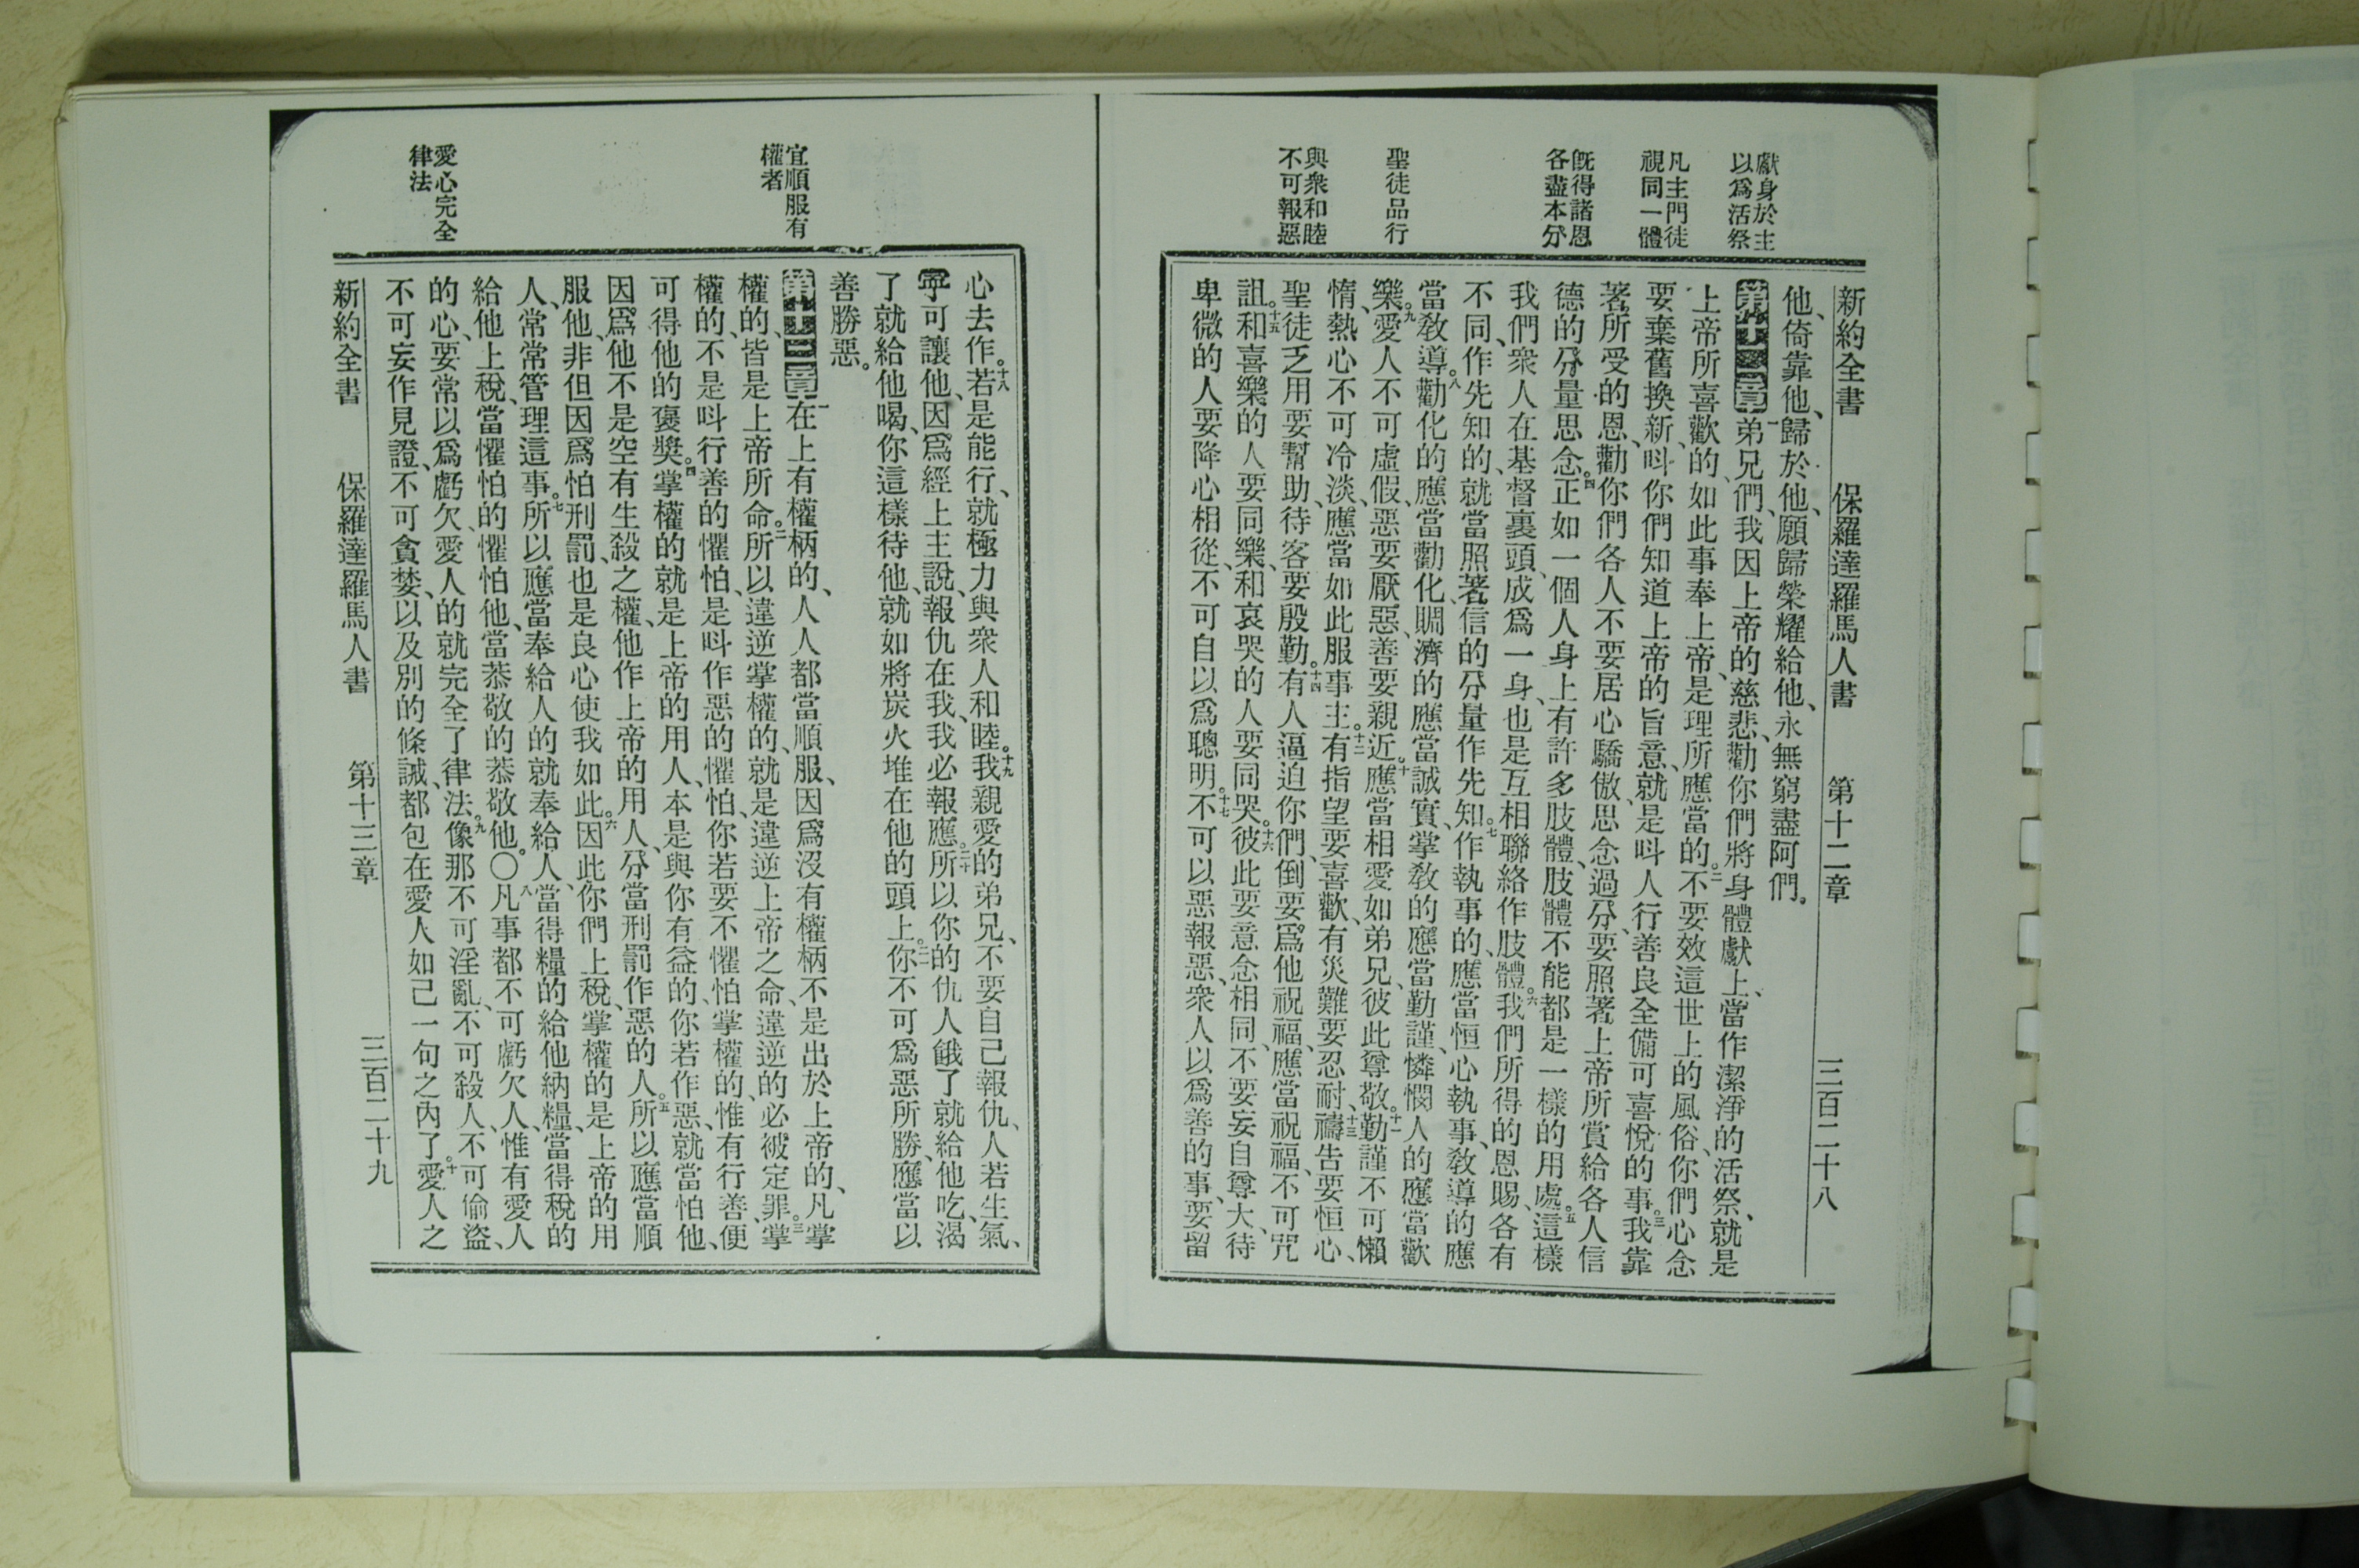 獻身於主
以爲活祭
凡主門徒
視同一體
旣得諸恩
各盡本分
聖徒品行
與衆和睦
不可報惡
新約全書 保羅達羅馬人書 第十二章 三百二十八
他、倚靠他、歸於他、願歸榮耀給他、永無窮盡阿們。
第十二章一弟兄們、我因上帝的慈悲、勸你們將身體獻上、當作潔淨的活祭、就是
上帝所喜歡的、如此事奉上帝、是理所應當的。二不要效這世上的風俗、你們心念
要棄舊換新、呌你們知道上帝的旨意、就是呌人行善良全備可喜悅的事。三我靠
著所受的恩、勸你們各人不要居心驕傲、思念過分、要照著上帝所賞給各人信
德的分量思念。四正如一個人身上有許多肢體、肢體不能都是一樣的用處。五這樣
我們衆人在基督裏頭、成爲一身、也是互相聯絡作肢體。六我們所得的恩賜、各有
不同、作先知的、就當照著信的分量作先知。七作執事的、應當恒心執事、敎導的應
當敎導。八勸化的應當勸化、賙濟的應當誠實、掌敎的應當勤謹、憐憫人的應當歡
樂。九愛人不可虛假、惡要厭惡、善要親近。十應當相愛如弟兄、彼此尊敬。十一勤謹不可懶
惰、熱心不可冷淡、應當如此服事主。十二有指望要喜歡、有災難要忍耐、十三禱告要恒心、
聖徒乏用要幫助、待客要殷勤。十四有人逼迫你們、倒要爲他祝福、應當祝福、不可咒
詛。十五和喜樂的人要同樂、和哀哭的人要同哭。十六彼此要意念相同、不要妄自尊大、待
卑微的人要降心相從、不可自以爲聰明。十七不可以惡報惡、衆人以爲善的事、要留
宜順服有
權者
愛心完全
律法
心去作。十八若是能行、就極力與衆人和睦。十九我親愛的弟兄、不要自己報仇、人若生氣、
寧可讓他、因爲經上主說、報仇在我、我必報應。二十所以你的仇人餓了就給他吃、渴
了就給他喝、你這樣待他、就如將炭火堆在他的頭上。二一你不可爲惡所勝、應當以
善勝惡。
第十三章一在上有權柄的、人人都當順服、因爲沒有權柄不是出於上帝的、凡掌
權的、皆是上帝所命。二所以違逆掌權的、就是違逆上帝之命、違逆的必被定罪。三掌
權的、不是呌行善的懼怕、是呌作惡的懼怕、你若要不懼怕掌權的、惟有行善、便
可得他的褒獎。四掌權的就是上帝的用人、本是與你有益的、你若作惡、就當怕他、
因爲他不是空有生殺之權、他作上帝的用人、分當刑罰作惡的人。五所以應當順
服他、非但因爲怕刑罰、也是良心使我如此。六因此你們上稅、掌權的是上帝的用
人、常常管理這事。七所以應當奉給人的就奉給人、當得糧的給他納糧、當得稅的
給他上稅、當懼怕的懼怕他、當恭敬的恭敬他。〇八凡事都不可虧欠人、惟有愛人
的心、要常以爲虧欠、愛人的就完全了律法。九像那不可淫亂、不可殺人、不可偷盜、
不可妄作見證、不可貪婪、以及別的條誡、都包在愛人如己一句之內了。十愛人之
新約全書 保羅達羅馬人書 第十三章 三百二十九